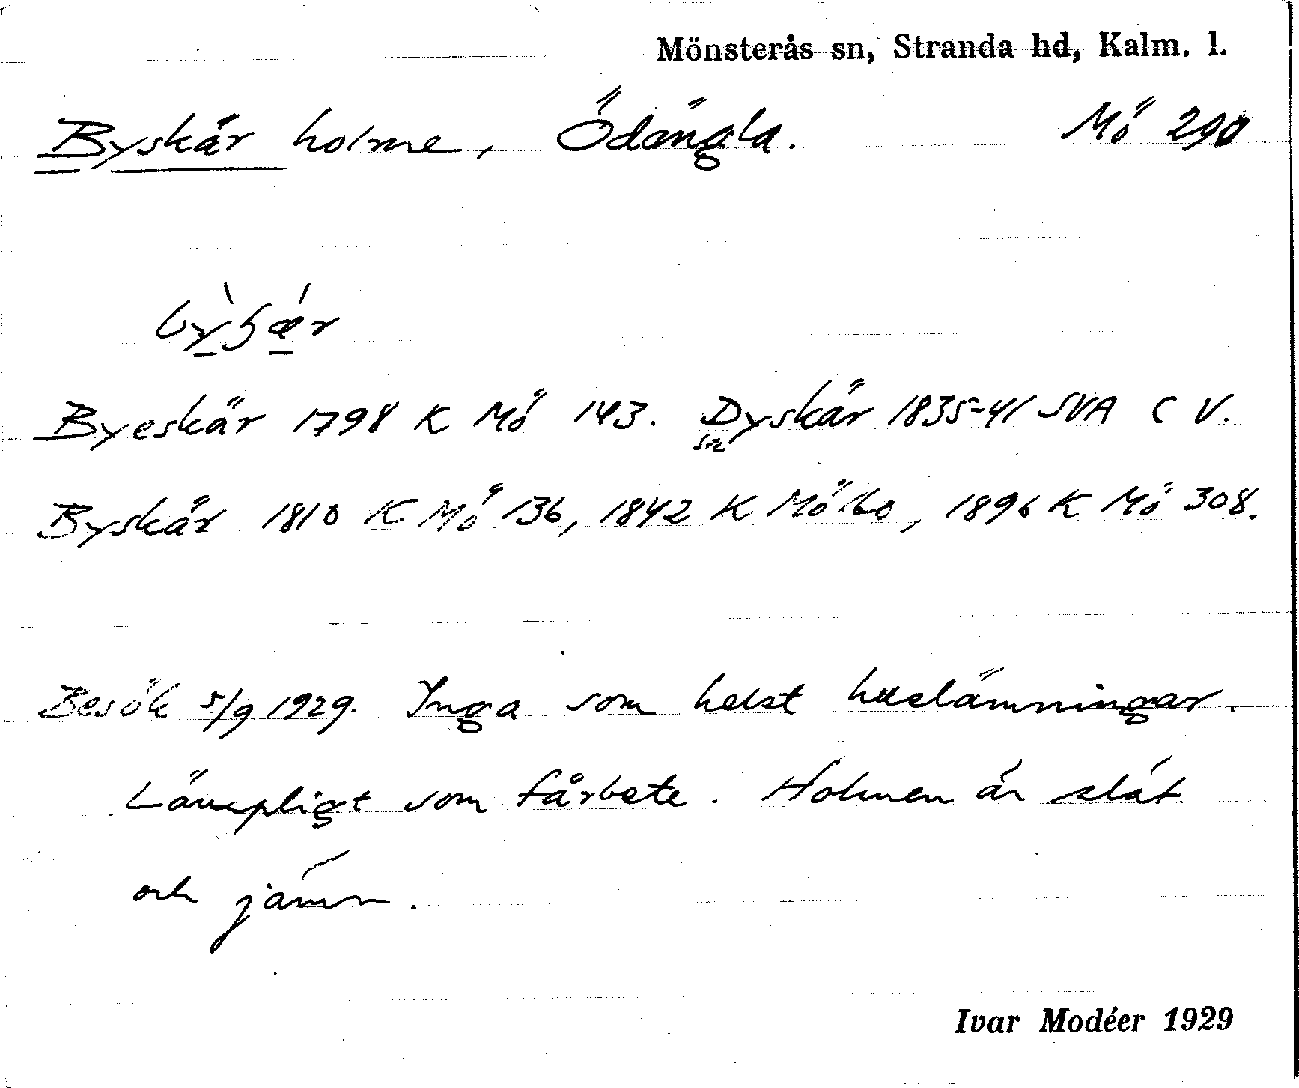 Mönsterås sn, Stranda hd, Kalm. l.
Byskär holme, Ödängla. Mö 290
Byeskär 1798 K Mö 143. Dyskär 1835-41 SVA C V.
sic
Byskär 1810 K Mö 136, 1842 K Mö 160, 1896 K Mö 308.
Besök 5/9 1929. Ynga som helst huslämningar.
Lämpligt som fårbete. Holmen är slät
och jämn.
Ivar Modéer 1929